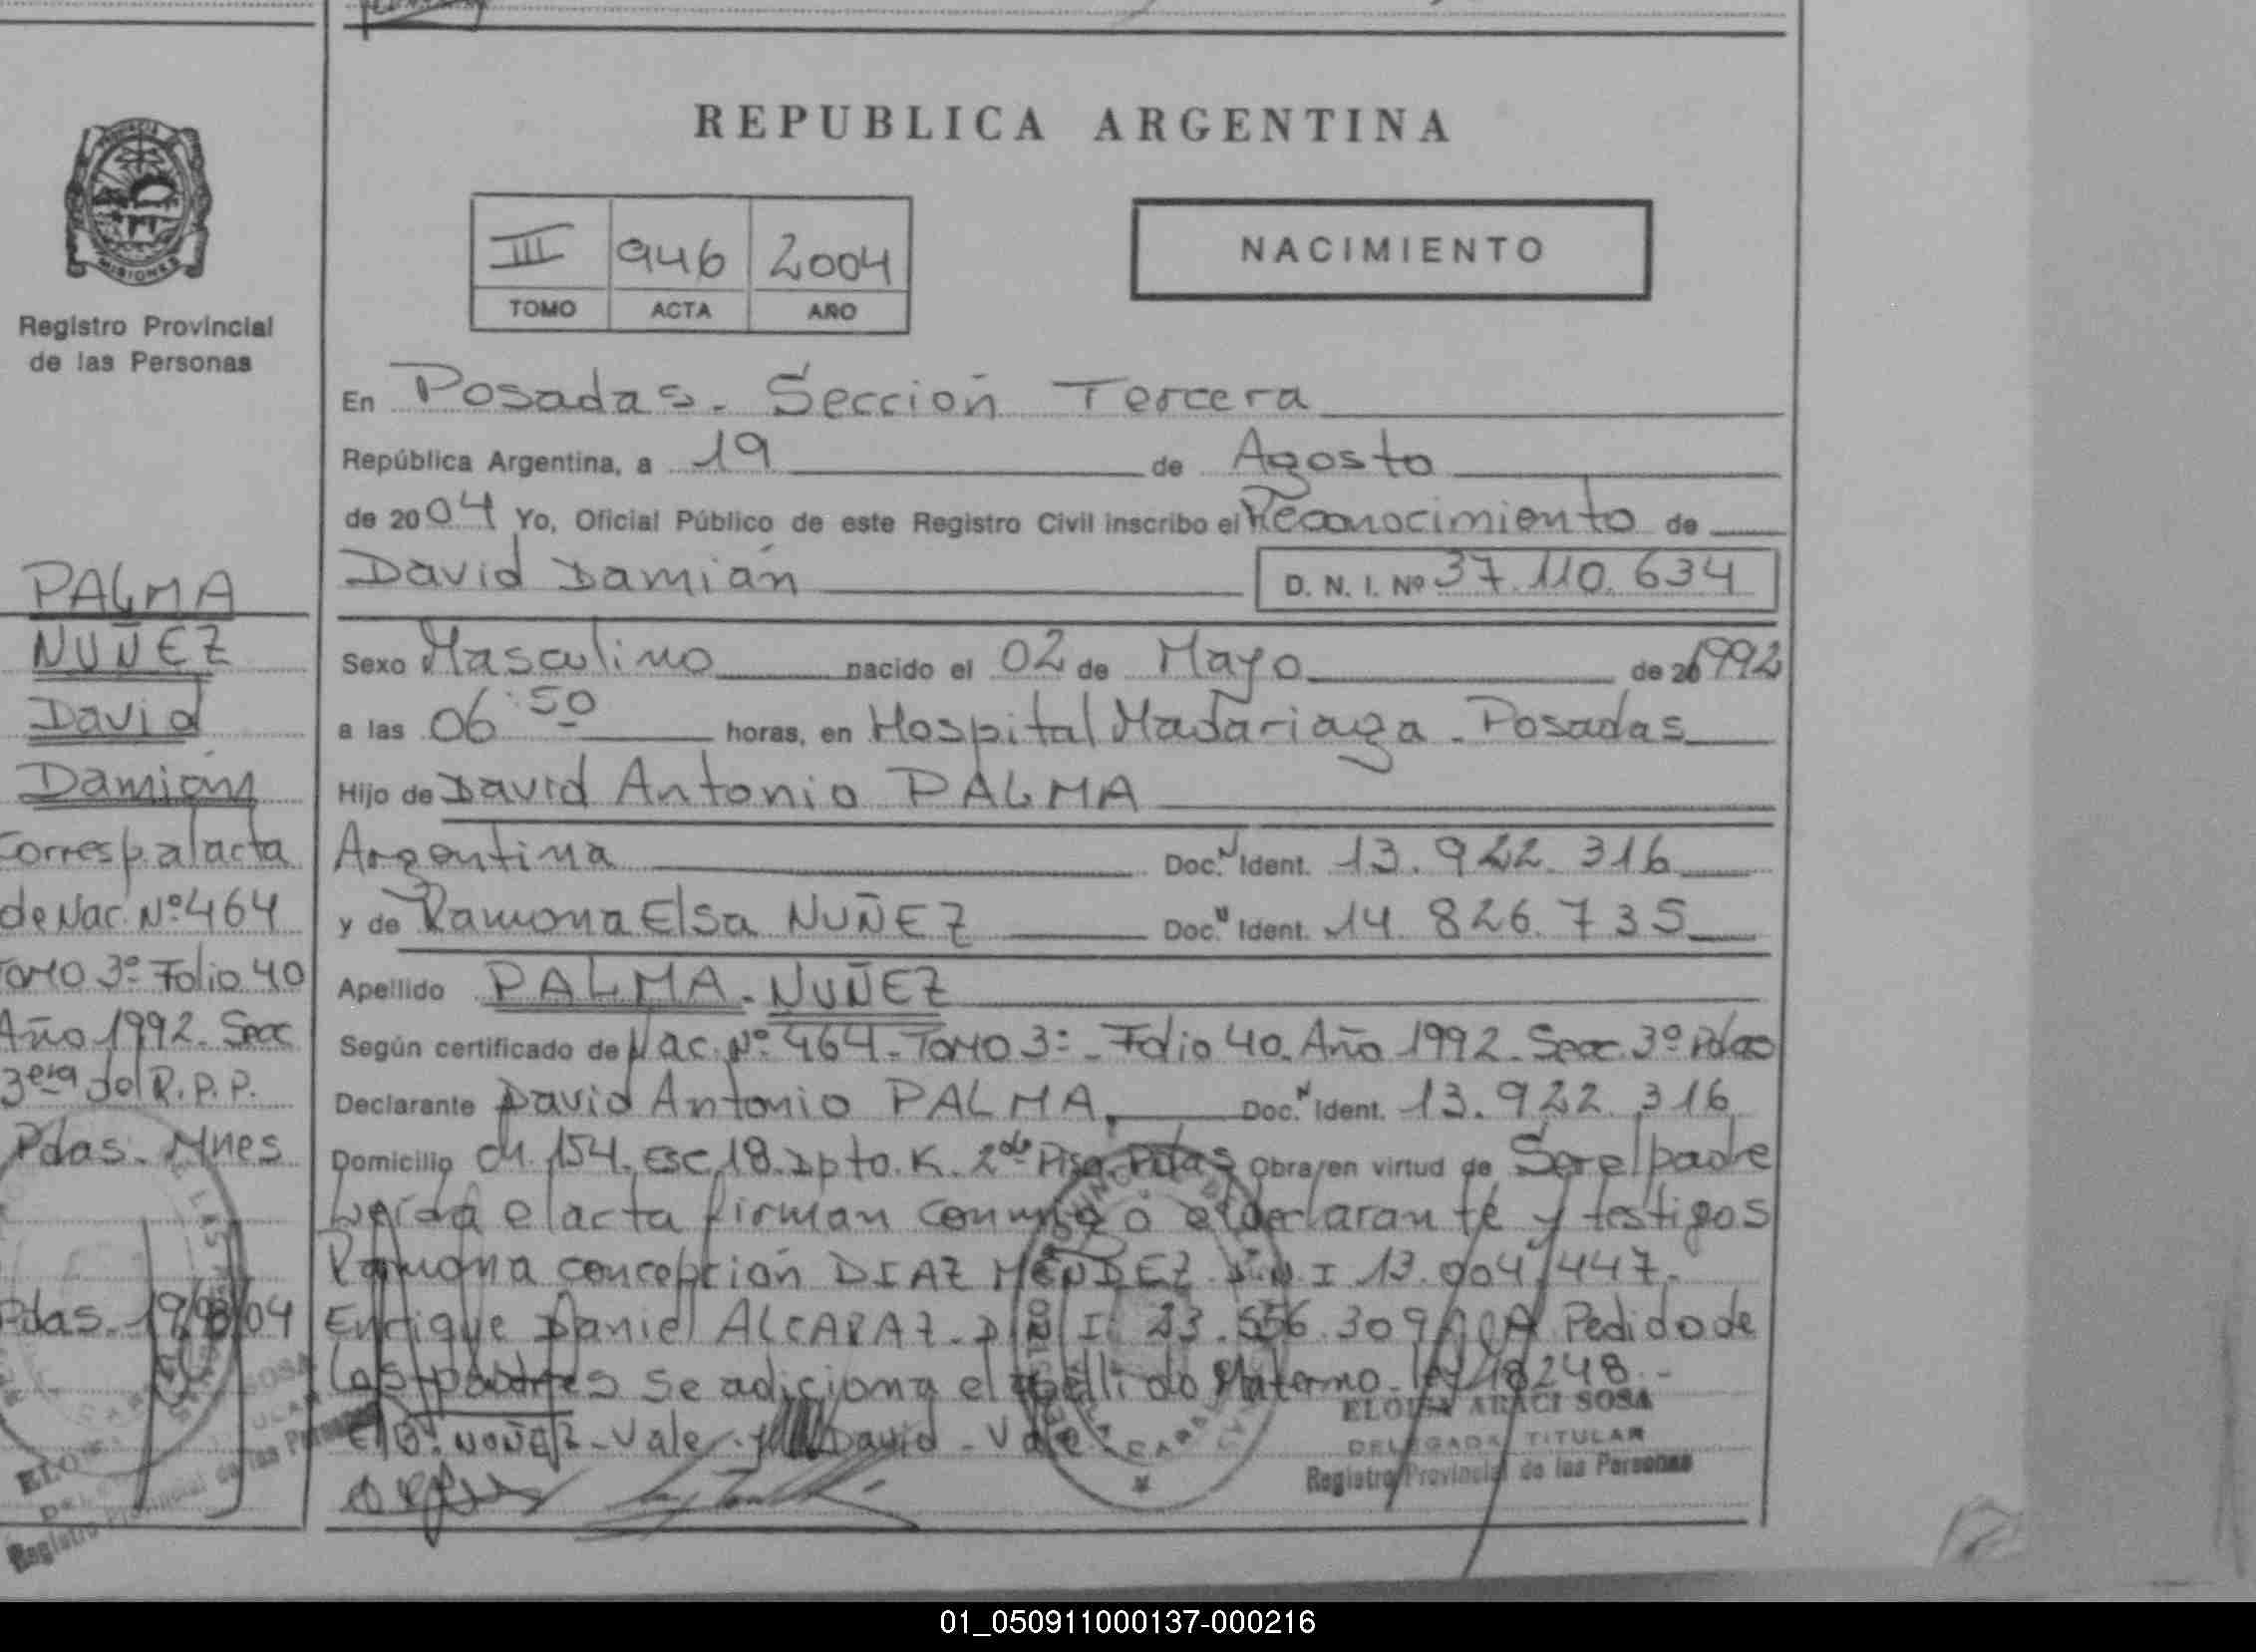 REPUBLICA ARGENTINA
PROVINCIA
MISIONES
Registro Provincial
de las Personas
III 946 2004
TOMO ACTA AÑO
NACIMIENTO
En Posadas - Sección Tercera
República Argentina, a 19 de Agosto
de 2004 Yo, Oficial Público de este Registro Civil inscribo el Reconocimiento de
David Damián D. N. I. Nº 37.110.634
Sexo Masculino nacido el 02 de Mayo de 1992
a las 06:50 horas, en Hospital Madariaga - Posadas
Hijo de David Antonio PALMA
Argentina Doc. N Ident. 13.922.316
y de Ramona Elsa NUÑEZ Doc. N Ident. 14.826.735
Apellido PALMA - NUÑEZ
Según certificado de Nac. Nº 464 - Tomo 3º - Folio 40. Año 1992 - Secc. 3º Pdas
Declarante David Antonio PALMA. Doc. N Ident. 13.922.316
Domicilio Ch. 154. Esc 18. Dpto. K. 2do Piso. Pdas Obra en virtud de Ser el padre
Leída el acta firman conmigo el declarante y testigos
Ramona concepción DIAZ MENDEZ D.N.I 13.004.447.
Enrique Daniel ALCARAZ - D.N.I 23.556.309 A Pedido de
los padres se adiciona el apellido Materno - ley 18248.-
NUÑEZ - Vale - David - Vale
ELOISA ARACI SOSA
DELEGADA TITULAR
Registro Provincial de las Personas
PALMA
NUÑEZ
David
Damián
Corresp. al acta
de Nac. Nº 464
Tomo 3º Folio 40
Año 1992 - Secc
3era del R.P.P.
Pdas - Mnes
Pdas - 19/08/04
SOSA
Registro Provincial de las Personas
01_050911000137-000216